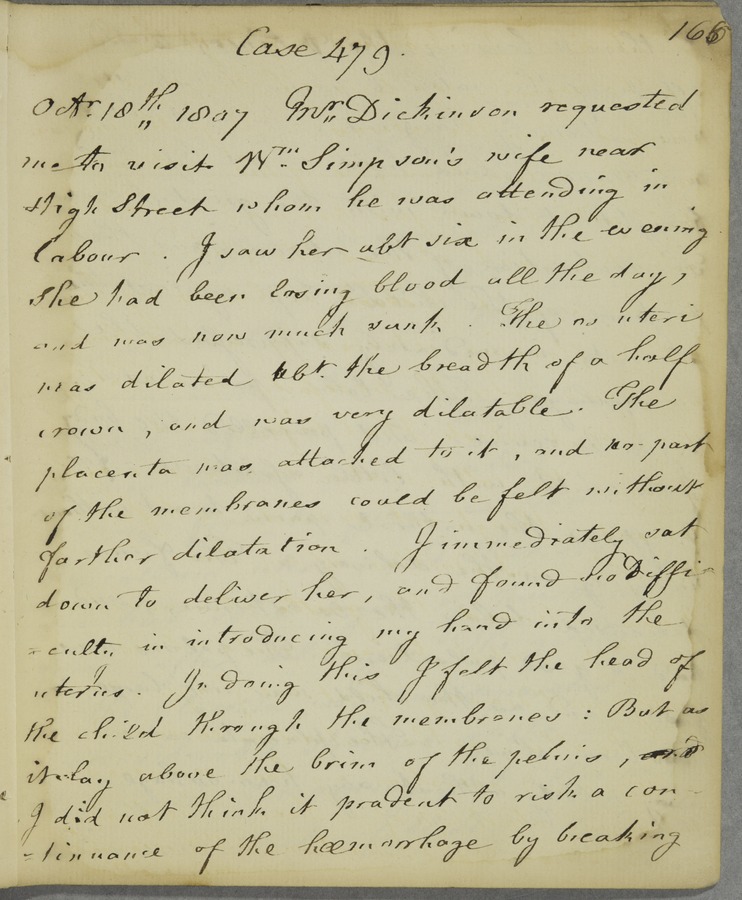 166
Case 479.
Octr. 18th 1807 Mr. Dickinson requested
me to visit Wm. Simpson's wife near
High Street whom he was attending in
Labour. I saw her abt six in the evening
She had been losing blood all the day,
and was now much sunk. The os uteri
was dilated abt. the breadth of a half
crown, and was very dilatable. The
placenta was attached to it, and no part
of the membranes could be felt without
farther dilatation. I immediately sat
down to deliver her, and found no Diffi-
=culty in introducing my hand into the
uterus. In doing this I felt the head of
the child through the membranes: But as
it lay above the brim of the pelvis,
I did not think it prudent to risk a con-
=tinuance of the hœmorrhage by breaking